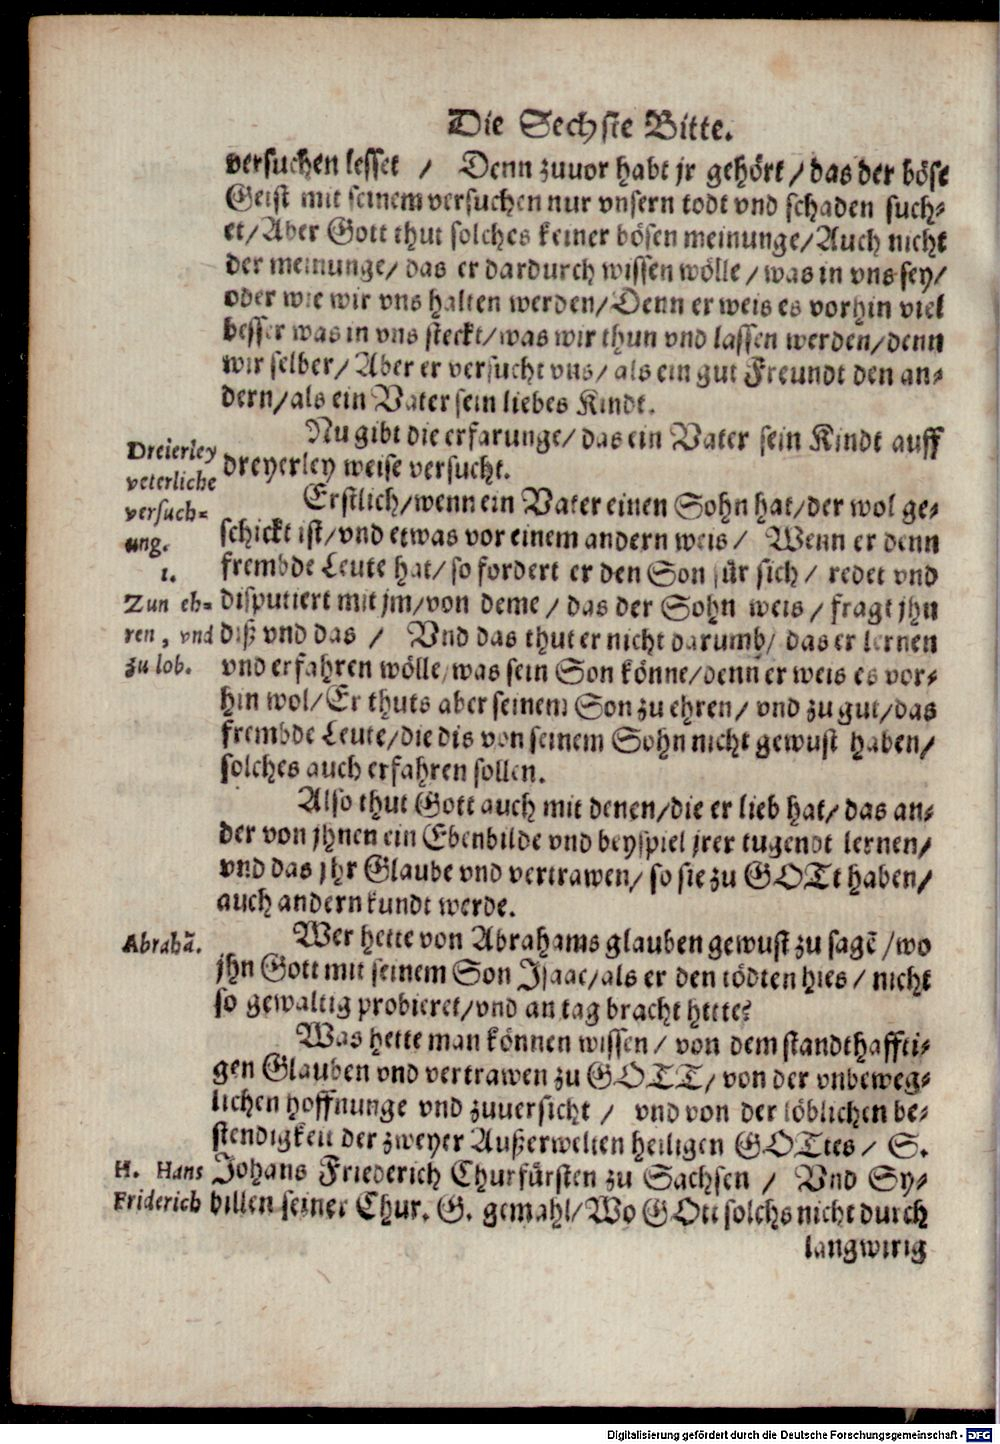 Die Sechste Bitte.
versuchen lesset / Denn zuuor habt jr gehört / das der böse
Geist mit seinem versuchen nur vnsern todt vnd schaden such-
et/Aber Gott thut solches keiner bösen meinunge/Auch nicht
der meinunge/ das er dardurch wissen wölle / was in vns sey/
oder wie wir vns halten werden/Denn er weis es vorhin viel
besser was in vns steckt/was wir thun vnd lassen werden/denn
wir selber/ Aber er versucht vns/ als ein gut Freundt den an-
dern/als ein Vater sein liebes Kindt.
Nu gibt die erfarunge/ das ein Vater sein Kindt auff
dreyerley weise versucht.
Dreierley
veterliche
versuch-
ung.
1.
Zun eh-
ren, vnd
zu lob.
Erstlich/wenn ein Vater einen Sohn hat/der wol ge-
schickt ist/vnd etwas vor einem andern weis / Wenn er denn
frembde Leute hat/ so fordert er den Son für sich / redet vnd
disputiert mit jm/von deme / das der Sohn weis / fragt jhn
diß vnd das / Vnd das thut er nicht darumb/ das er lernen
vnd erfahren wölle/was sein Son könne/denn er weis es vor-
hin wol/Er thuts aber seinem Son zu ehren/ vnd zu gut/das
frembde Leute/die dis von seinem Sohn nicht gewust haben/
solches auch erfahren sollen.
Also thut Gott auch mit denen/die er lieb hat/ das an-
der von jhnen ein Ebenbilde vnd beyspiel jrer tugendt lernen/
vnd das jhr Glaube vnd vertrawen/ so sie zu GOTt haben/
auch andern kundt werde.
Abrahã.
Wer hette von Abrahams glauben gewust zu sagẽ /wo
jhn Gott mit seinem Son Isaac/als er den tödten hies / nicht
so gewaltig probieret/vnd an tag bracht hette?
Was hette man können wissen / von dem standthaffti-
gen Glauben vnd vertrawen zu GOTT/ von der vnbeweg-
lichen hoffnunge vnd zuuersicht / vnd von der löblichen be-
stendigkeit der zweyer Außerwelten heiligen GOTtes / S.
H. Hans
Friderich
Johans Friederich Churfürsten zu Sachsen / Vnd Sy-
billen seiner Chur. G. gemahl/Wo GOtt solchs nicht durch
langwirig
Digitalisierung gefördert durch die Deutsche Forschungsgemeinschaft - DFG